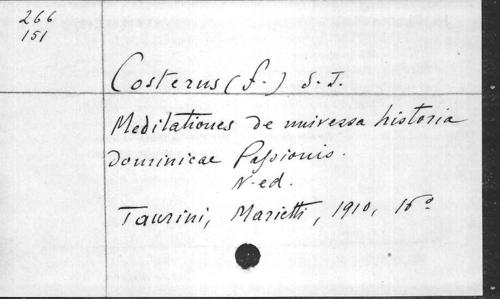 266
151
Costerus (f.) S. I.
Meditationes de universa historia
Dominicae Passionis.
N. ed.
Taurini, Marietti, 1910, 16º